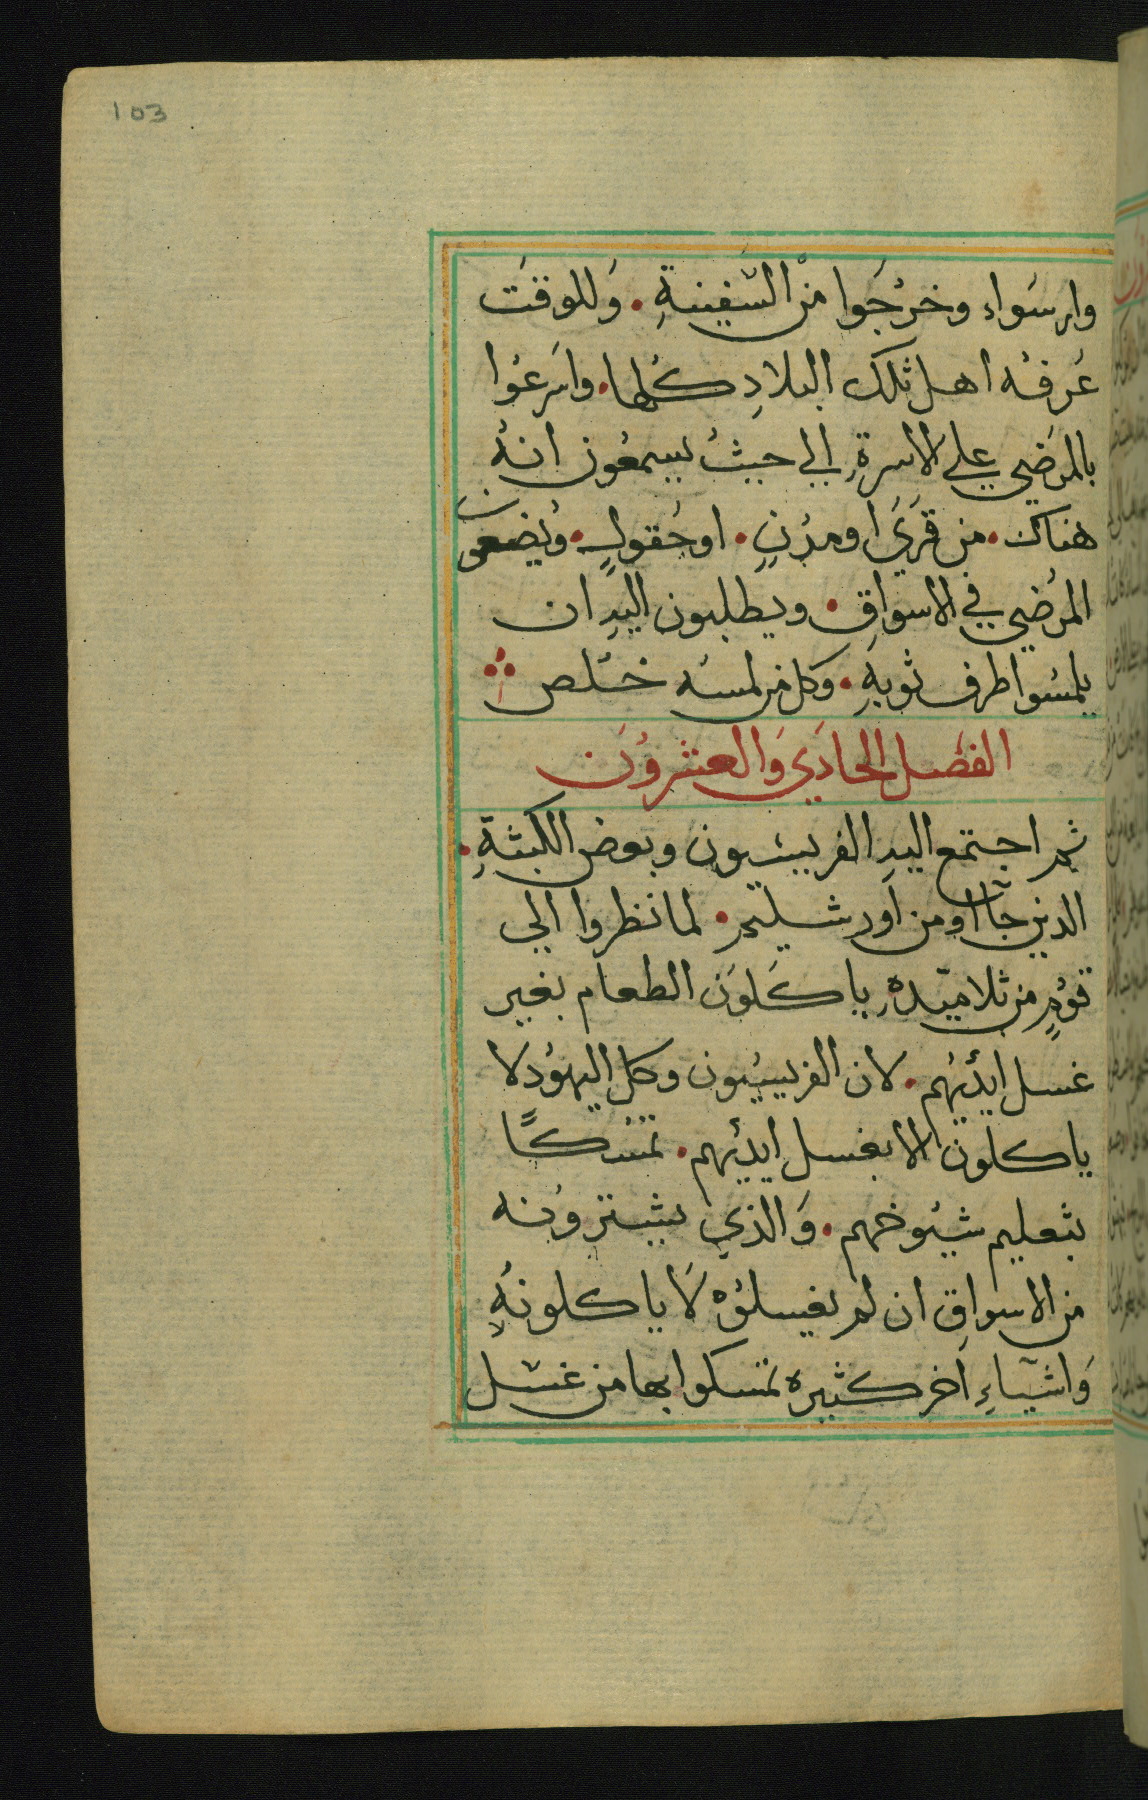 103
وارسَواء وخرُجَوا منّ السَفِينةِ. وَللوقتَ
عَرفهُ اهل تلك البلادِ كُلها. واسَرعُوا
بالمرَضي علي الاسرةِ الي حيثُ يسمعُون انهُ
هناك. من قرَيَ او مدُنٍ. او حُقولٍ. ويُضعَون
المرُضي في الاسواقِ. ويطلبون اليهِ ان
يلمسُوا طرف ثوبهِ. وكل من لمسهُ خلص
الفصَل الحادَي وَالعشروُنَ
ثم اجتمع اليهِ الفريسيون وبعض الكتبةِ.
الدين جآاو من اورشليم. لما نظروا الي
قومٍ من تلاميّدهِ ياكَلوَن الطعام بغير
غسل ايديهُم. لان الفريسيُون وكل اليهوُد لا
ياكلون الا بغسل ايديهم. تمسُكًا
بتعليم شيُوخهم. وَالذي يشترونه
من الاسواقِ ان لم يغسلوُه لَا ياكلونهُ
وَاشيآءِ اخر كثيره تمسكوا بها من غسَل